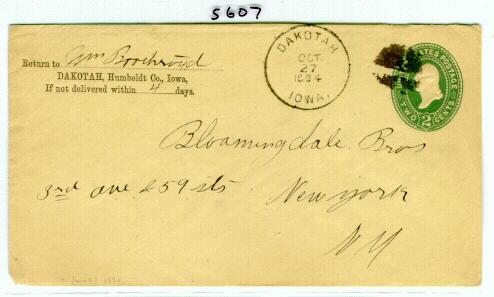 5607
Return to Wm Boothroid
DAKOTAH, Humboldt Co., Iowa,
If not delivered within 4 days.
DAKOTAH
OCT
27
1894
IOWA.
UNITED STATES POSTAGE
TWO 2 CENTS
Bloomingdale Bros
3rd ave & 59 sts
New York
NY